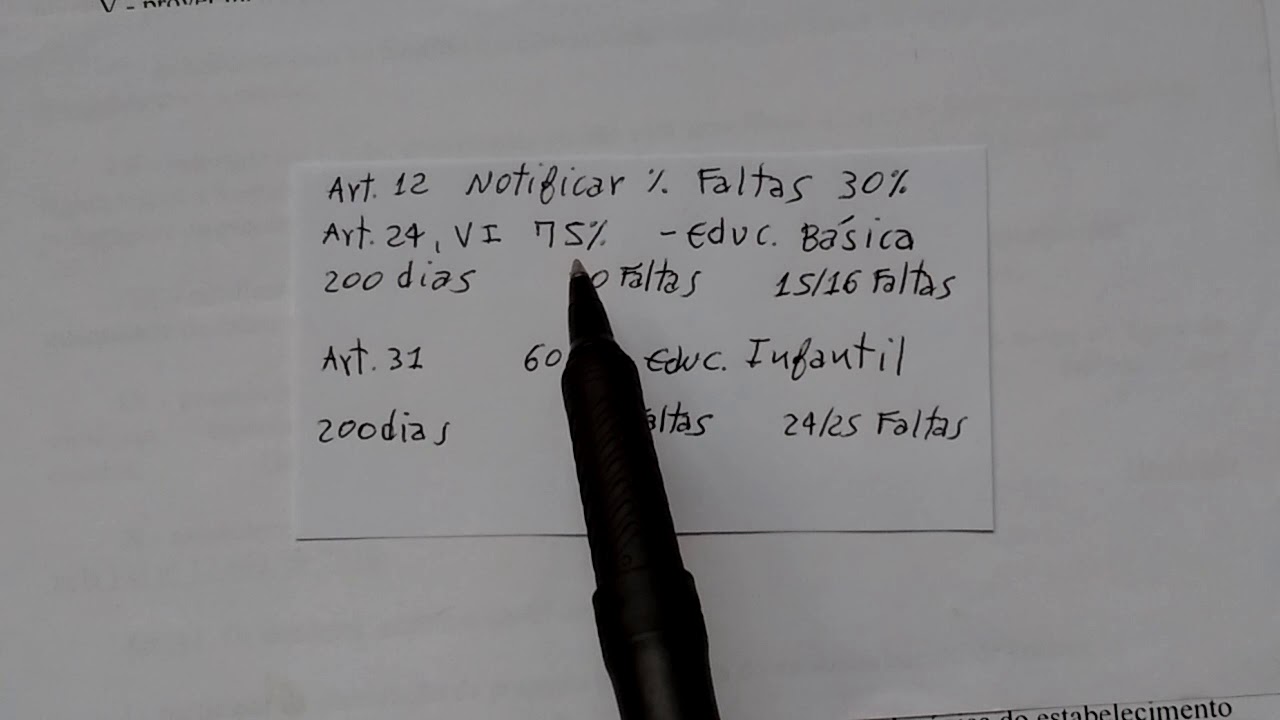 Art. 12 Notificar % Faltas 30%
Art. 24, VI 75% - Educ. Básica
200 dias 0 Faltas 15/16 Faltas
Art. 31 60 Educ. Infantil
200 dias altas 24/25 Faltas
do estabelecimento